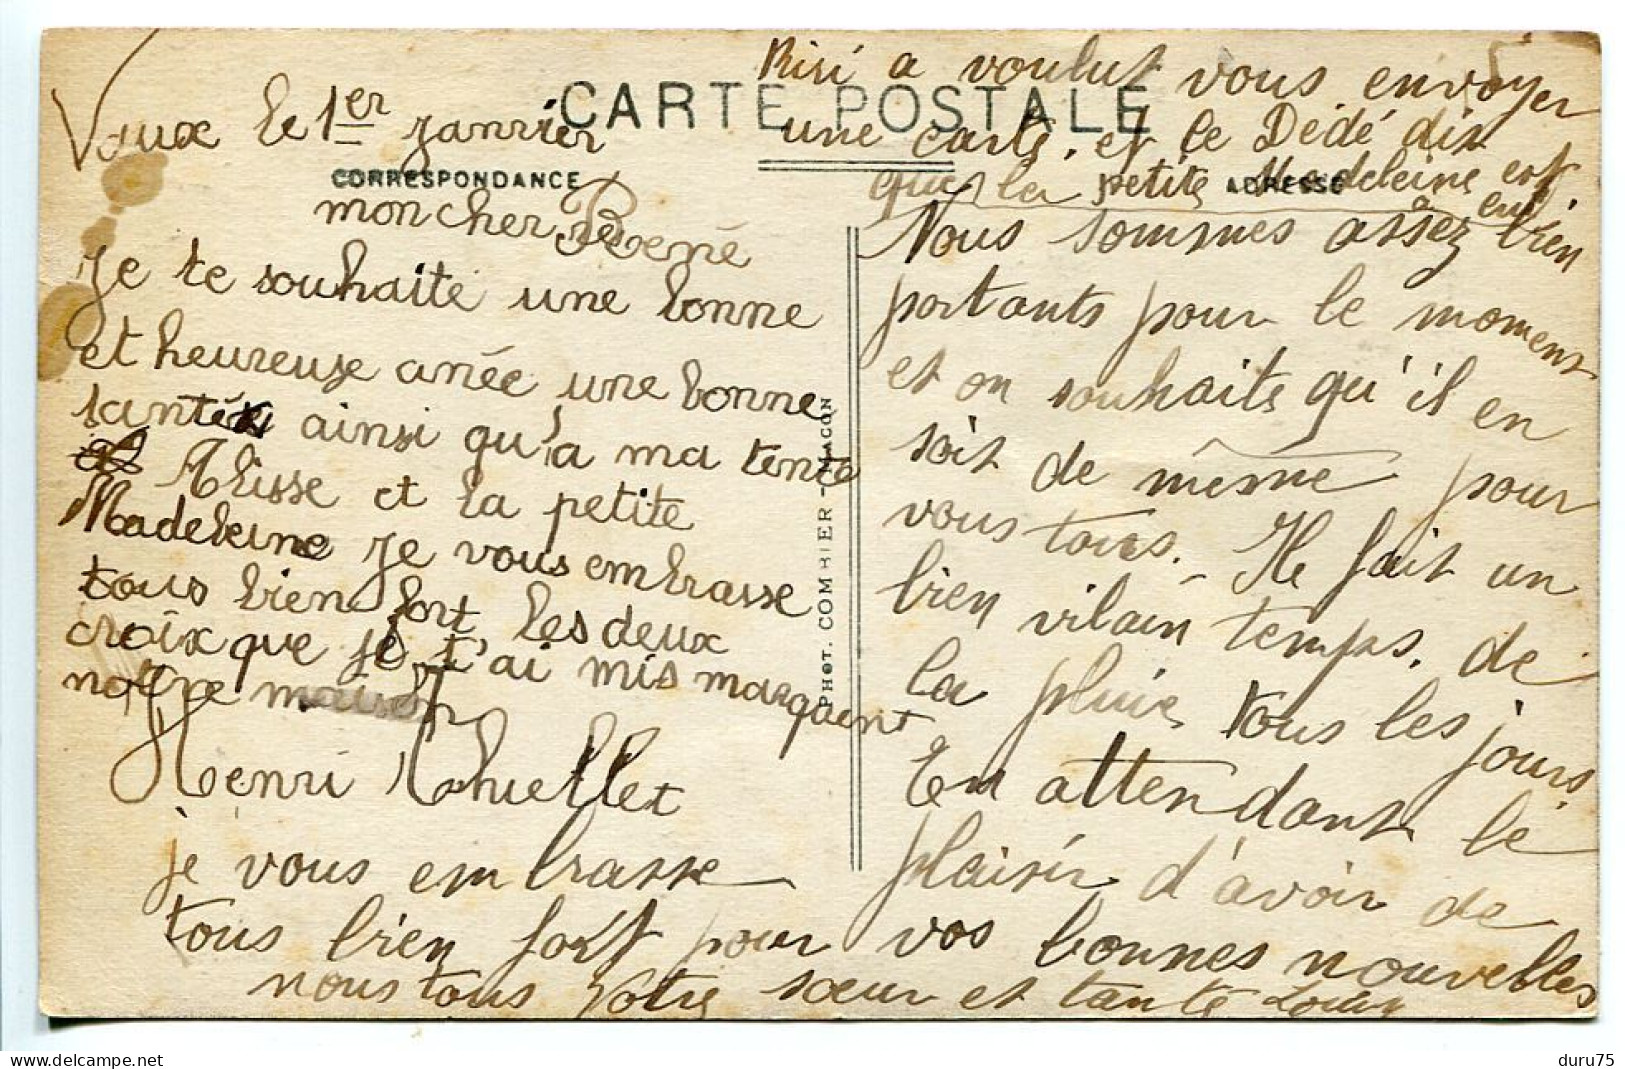 CARTE POSTALE
CORRESPONDANCE
ADRESSE
PHOT. COMBIER - MACON
Vaux le 1er janvier
mon cher René
je te souhaite une bonne
et heureuse anée une bonne
santé ainsi qu'a ma tente
Alisse et la petite
Madeleine je vous embrasse
tous bien fort les deux
croix que je t'ai mis marquent
notre maison
Henri
je vous embrasse
tous bien fort pour
nous tous Votre sœur et tante
Riri a voulut vous envoyer
une carte. et le Dédé dit
que la petite Madeleine est
Nous sommes assez bien
portants pour le moment
et on souhaite qu'il en
soit de même pour
vous tous. Il fait un
bien vilain temps. de
la pluie tous les jours.
En attendant le
plaisir d'avoir de
vos bonnes nouvelles
duru75